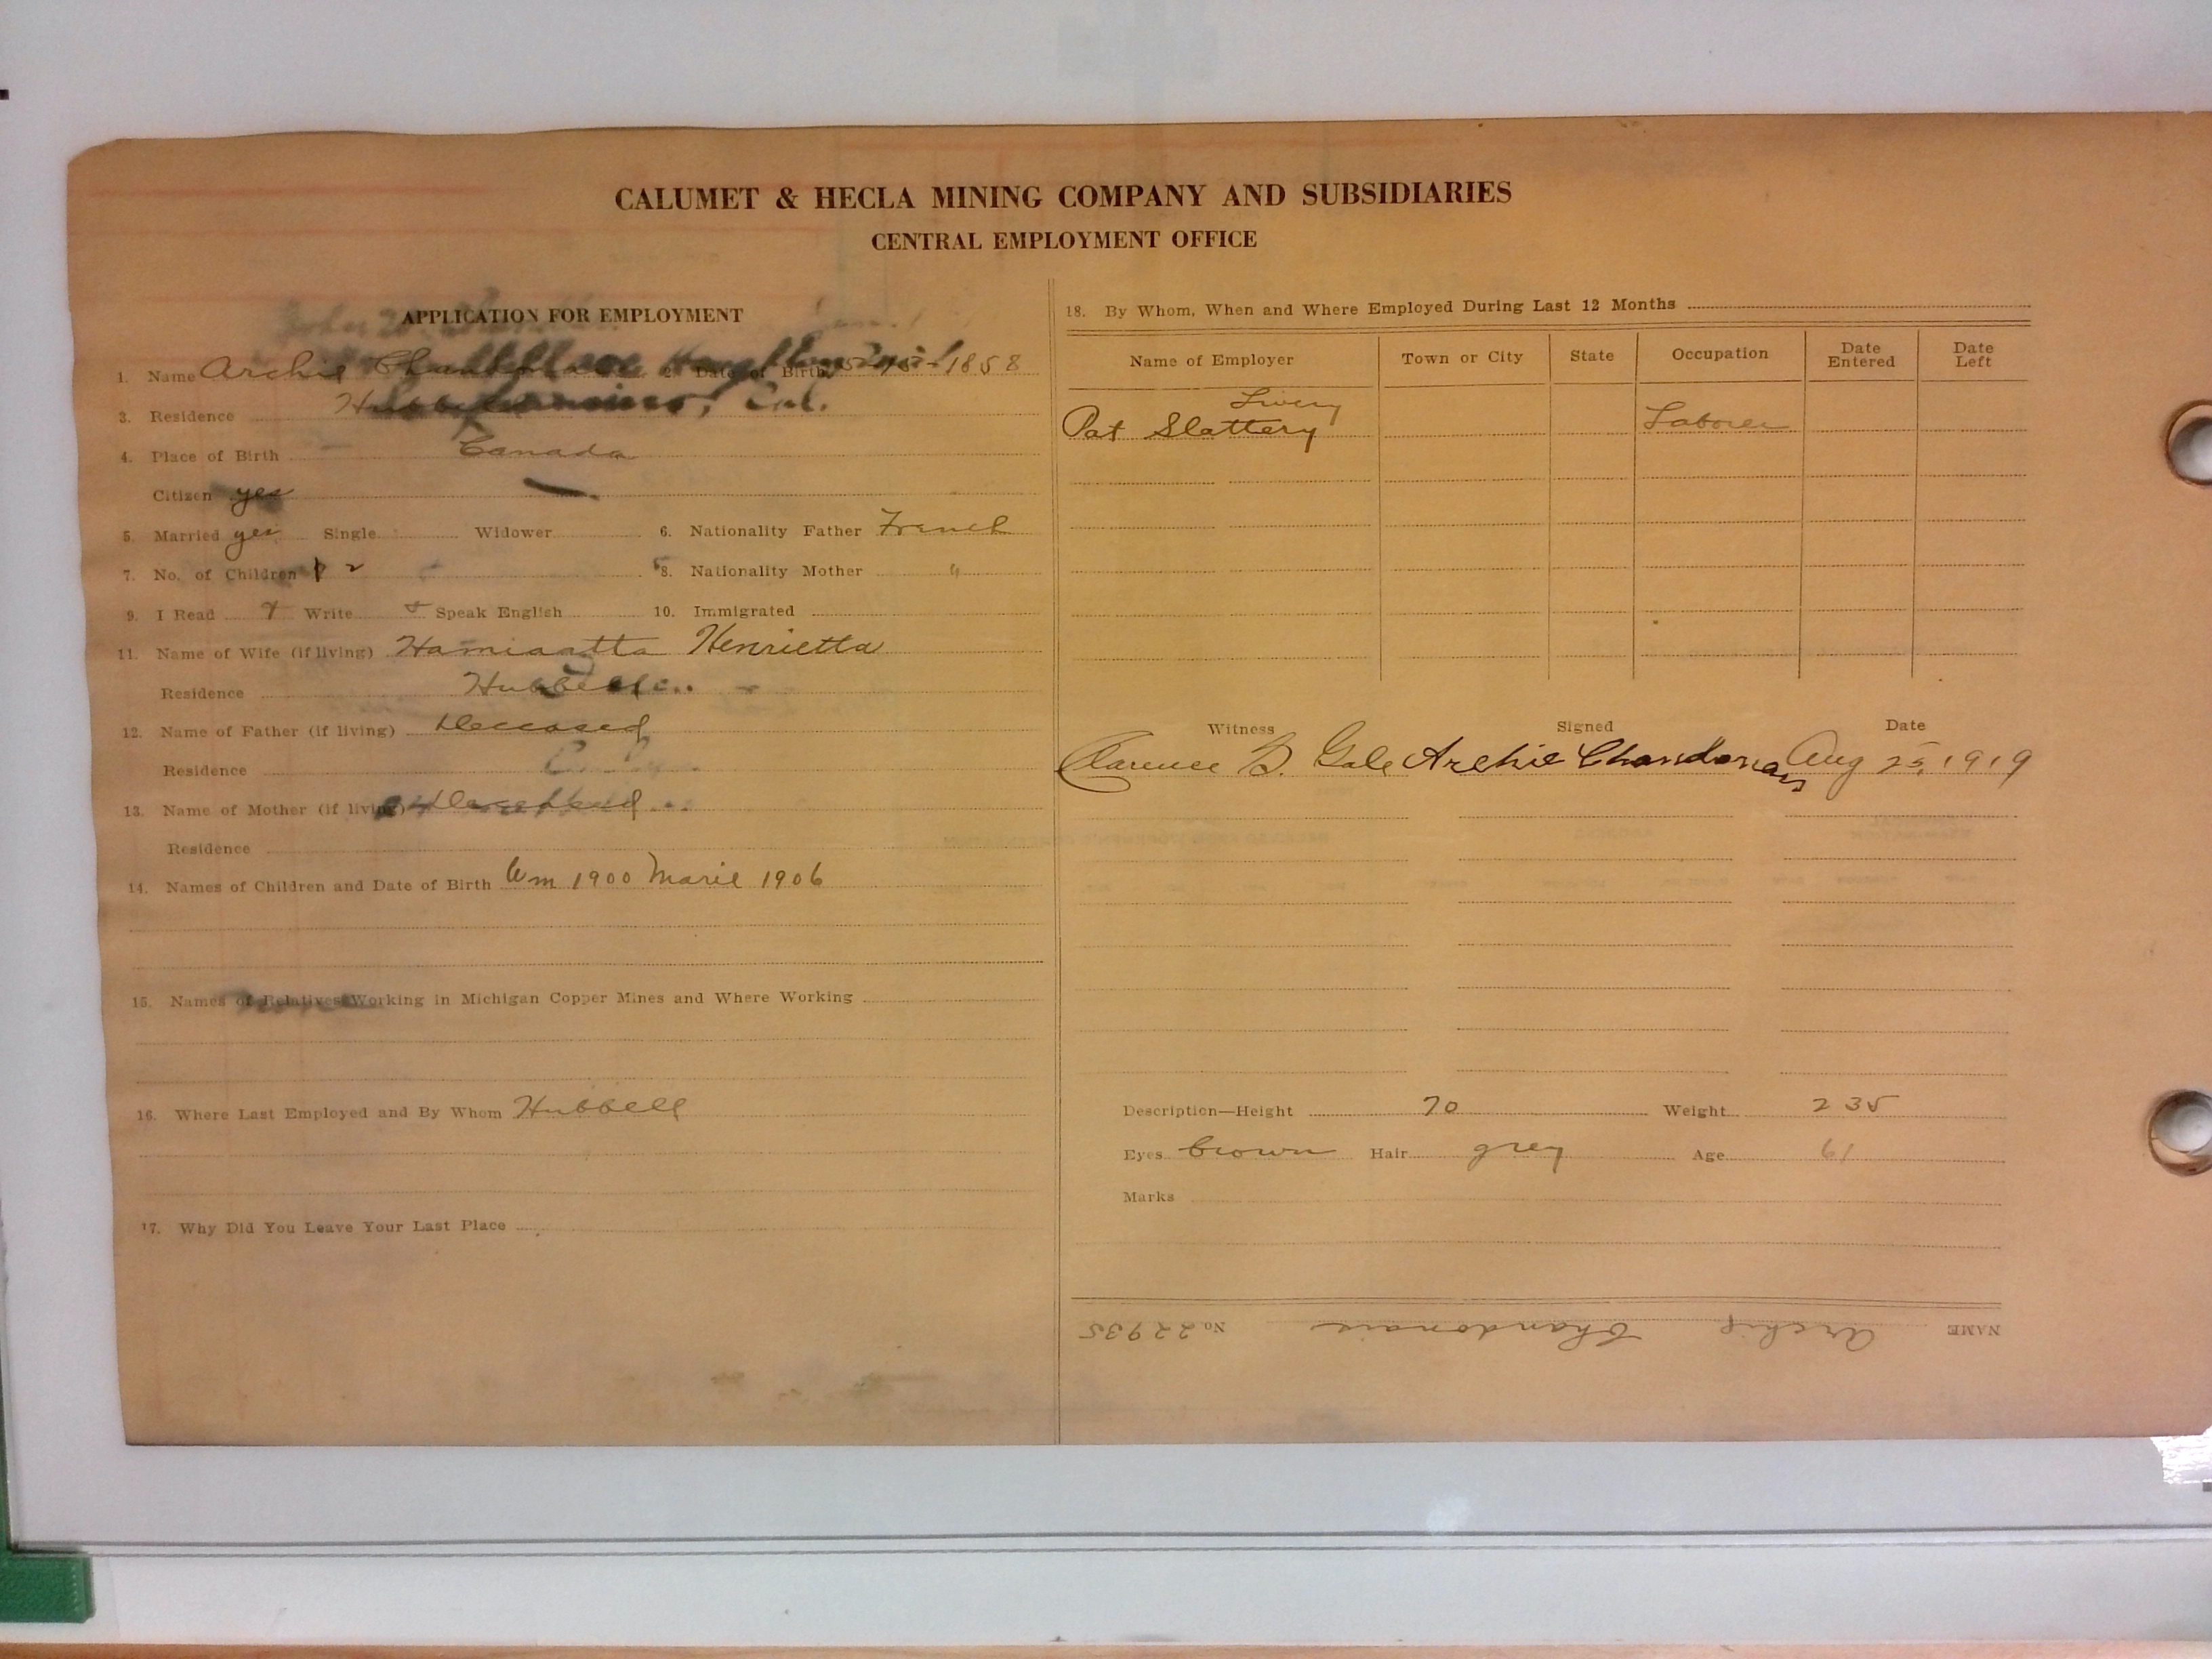 CALUMET & HECLA MINING COMPANY AND SUBSIDIARIES
CENTRAL EMPLOYMENT OFFICE
APPLICATION FOR EMPLOYMENT
1. Name Archie 2. Date of Birth 1858
3. Residence
4. Place of Birth Canada
Citizen yes
5. Married yes Single Widower 6. Nationality Father French
7. No. of Children 2 8. Nationality Mother "
9. I Read Write Speak English 10. Immigrated
11. Name of Wife (if living) Henrietta
Residence Hubbell
12. Name of Father (if living) Deceased
Residence
13. Name of Mother (if living) Deceased
Residence
14. Names of Children and Date of Birth Wm 1900 Marie 1906
15. Names of Relatives Working in Michigan Copper Mines and Where Working
16. Where Last Employed and By Whom Hubbell
17. Why Did You Leave Your Last Place
18. By Whom, When and Where Employed During Last 12 Months
Name of Employer Town or City State Occupation Date Entered Date Left
Livery
Pat Slattery Laborer
Witness Signed Date
Clarence B. Gale Archie Chandonais Aug 25, 1919
Description—Height 70 Weight 235
Eyes brown Hair grey Age 61
Marks
NAME Archie Chandonais No. 22935